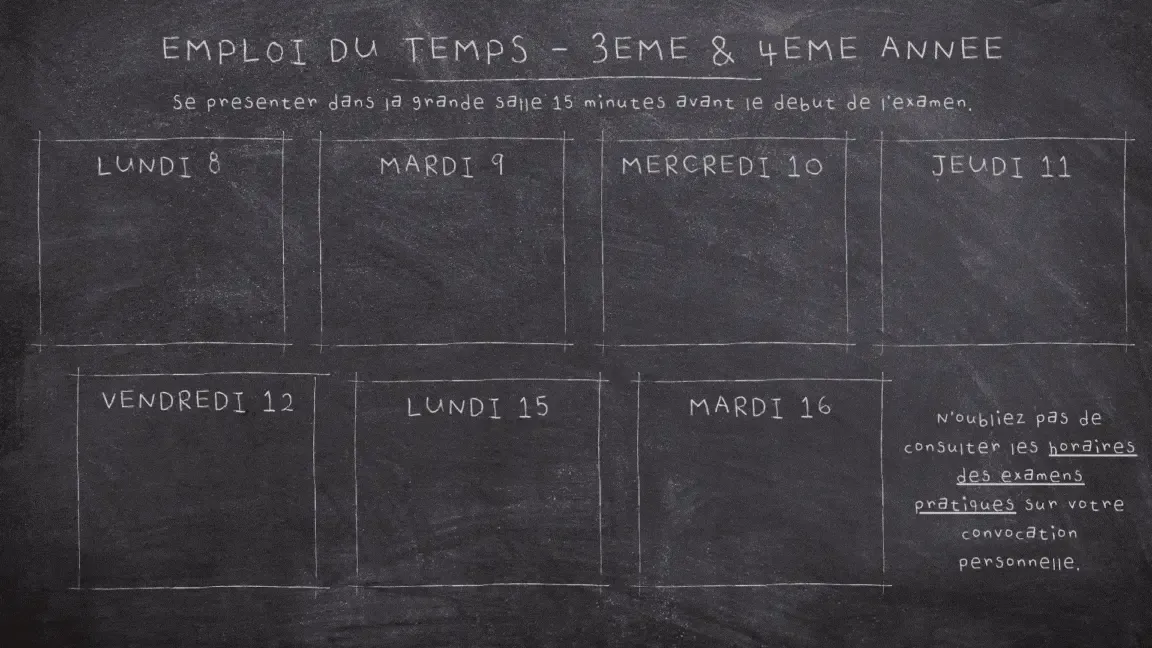 EMPLOI DU TEMPS - 3EME & 4EME ANNEE
Se presenter dans la grande salle 15 minutes avant le debut de l'examen.
LUNDI 8
MARDI 9
MERCREDI 10
JEUDI 11
VENDREDI 12
LUNDI 15
MARDI 16
N'oubliez pas de
consulter les horaires
des examens
pratiques sur votre
convocation
personnelle.